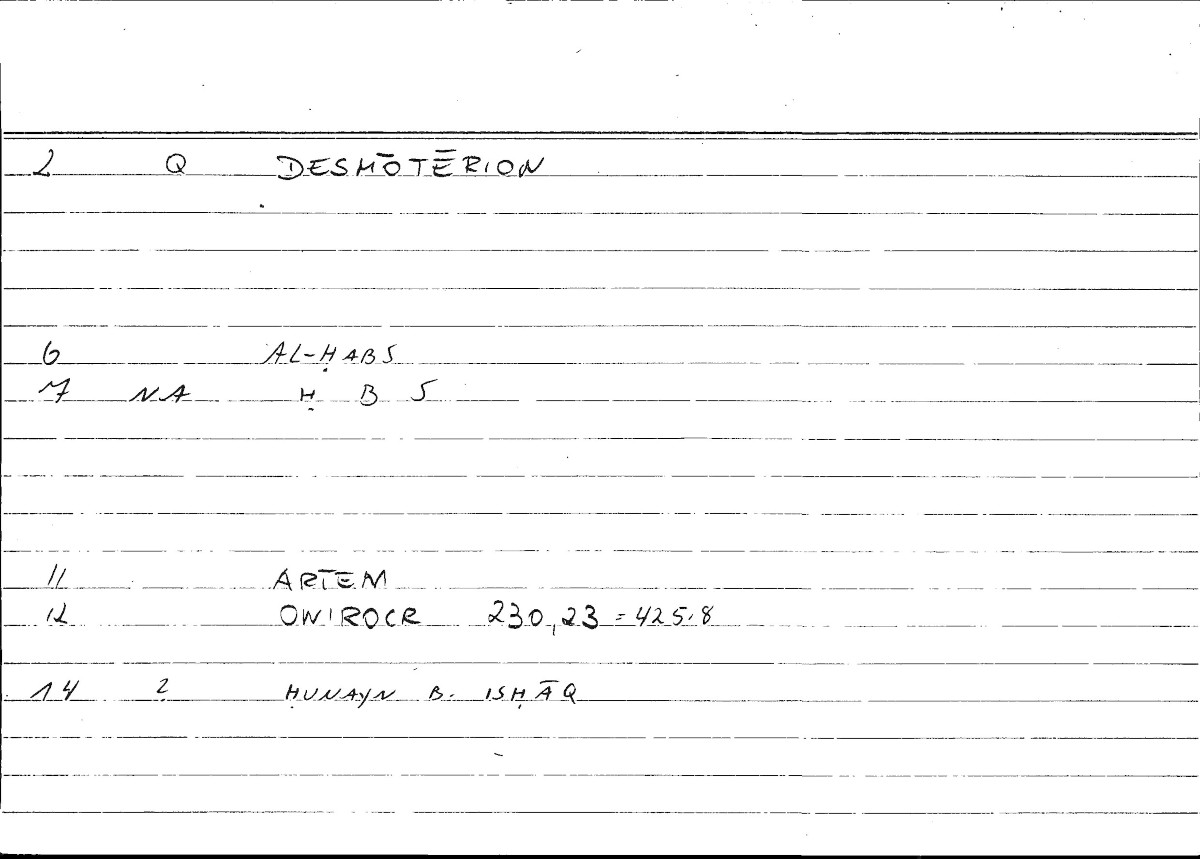 2 Q DESMŌTĒRION
6 AL-ḤABS
7 NA Ḥ B S
11 ARTEM
12 ONIROCR 230,23 = 425.8
14 2 ḤUNAYN B. ISḤĀQ